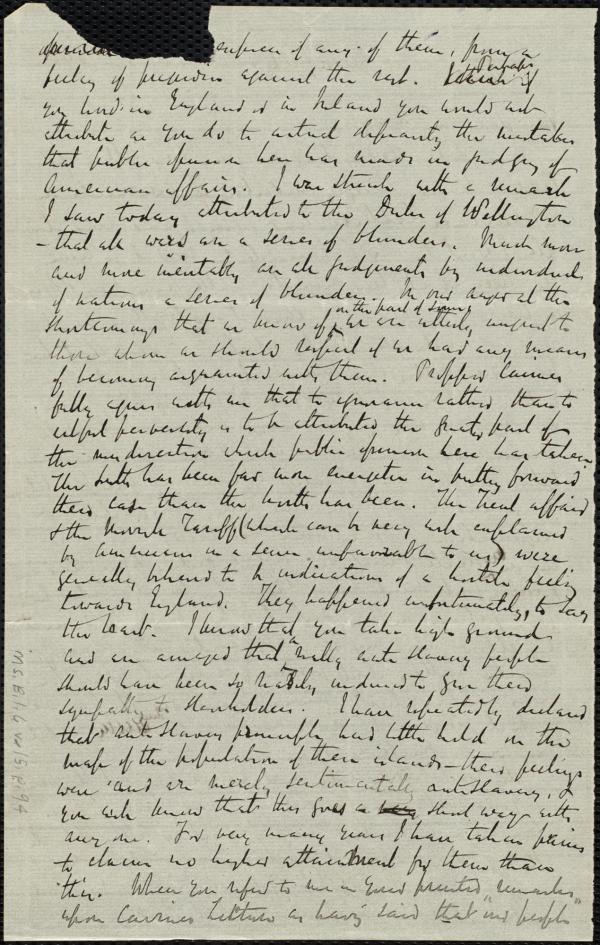 expence of any of them, from a
feeling of prejudice against the rest. Perhaps if
you lived in England or in Ireland you would not
attribute as you do to actual depravity the mistakes
that public opinion here has made in judging of
American affairs. I was struck with a remark
I saw today attributed to the Duke of Wellington
– that all wars are a series of blunders. Much more
and more inevitably are all judgements by individuals
of nations a series of blunders. In our anger at the
on the part of some
shortcomings that we know of, we are utterly unjust to
those whom we should respect if we had any means
of becoming acquainted with them. Professor Cairnes
fully agrees with me that to ignorance rather than to
wilful perversity is to be attributed the greater part of
the misdirection which public opinion here has taken.
The South has been far more energetic in putting forward
their case than the North has been. The Trent affair
& the Morrill Tariff (which can be very well explained
by Americans in a sense unfavourable to us) were
generally believed to be indications of a hostile feeling
towards England. They happened unfortunately, to say
the least. I know that you take high ground
and are amazed that a really anti slavery people
should have been so easily induced to give their
sympathy to slaveholders. I have repeatedly declared
that anti slavery principle had little hold on the
mass of the population of these islands – their feelings
were and are merely sentimentally anti slavery, &
you well know that this goes a very short way with
any one. For very many years I have taken pains
to claim no higher attainment for them than
this. When you refer to me in your printed remarks
upon Cairnes Lecture as having said that "our people"
Ms.B.1.6 v.9, p.94